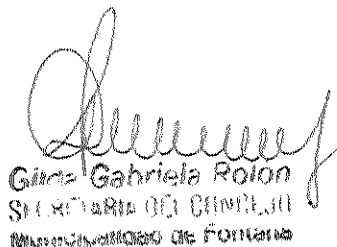 Gilda Gabriela Rolon
SECRETARIA DEL CONCEJO
Municipalidad de Fontana